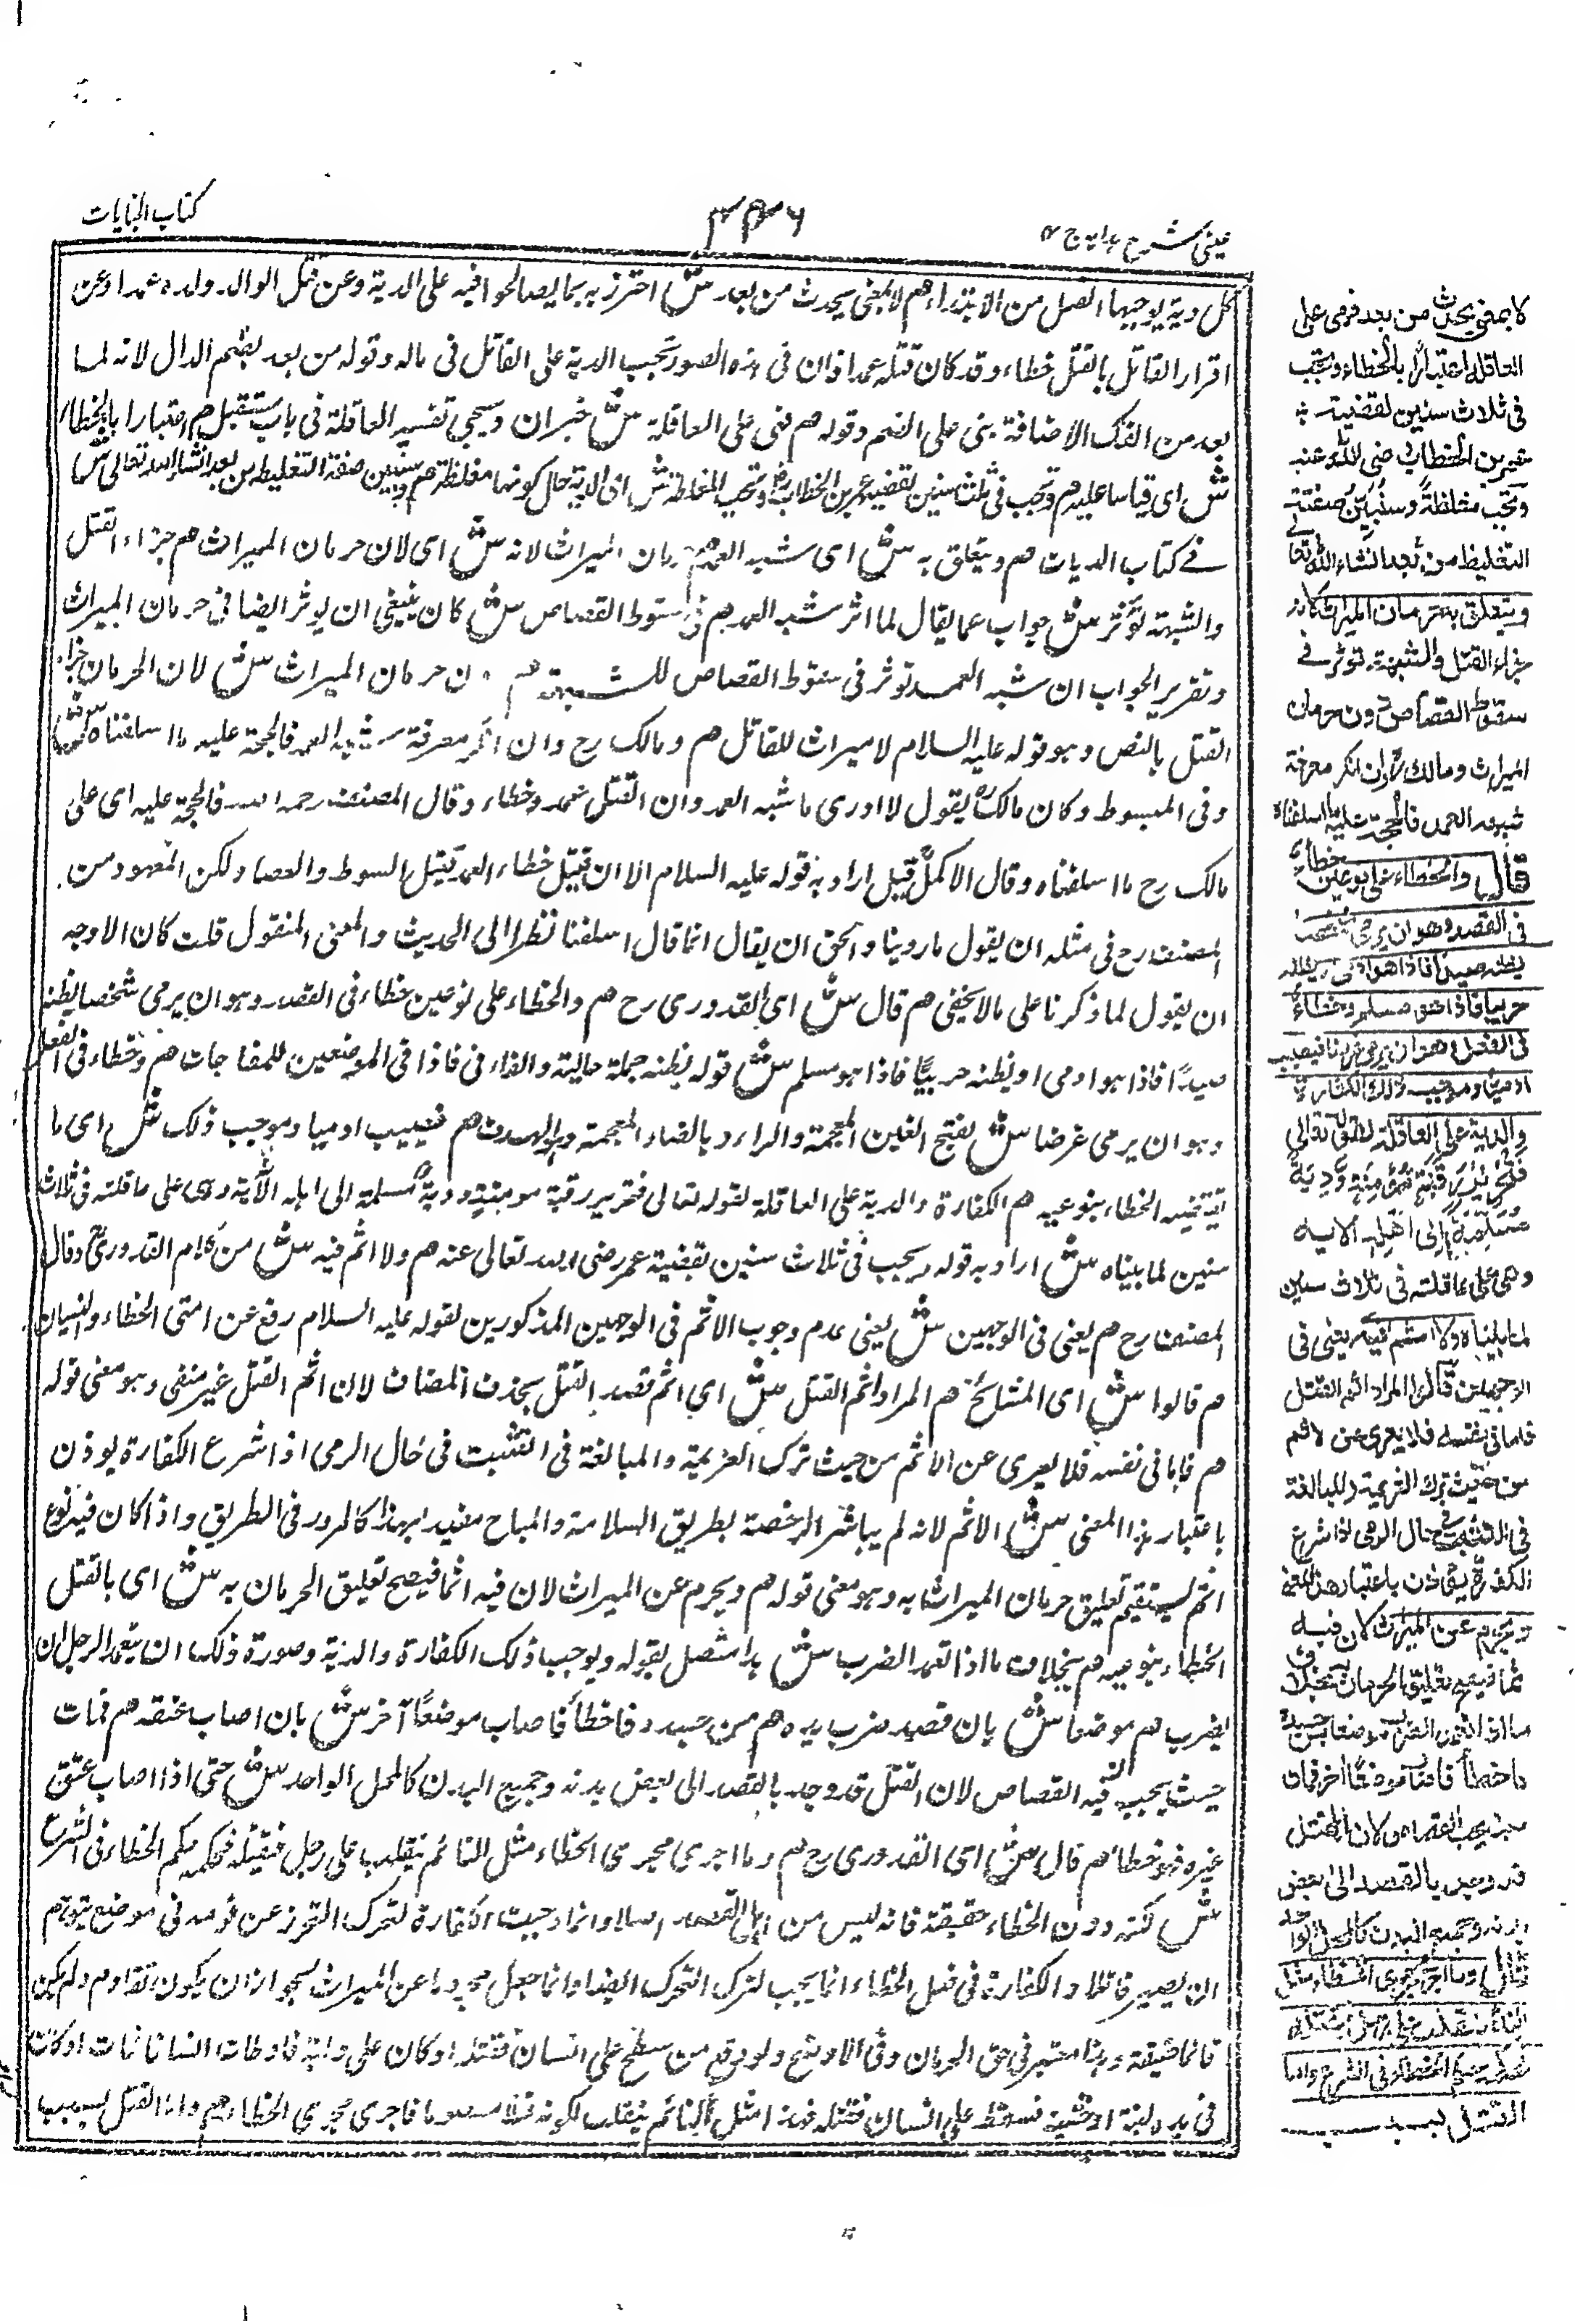 عینی شرح ہدایہ ج ۴
۴۴۶
کتاب الجنایات
کل دیة یوجبها القتل من الابتداء هم لا بمعنی یحدث من بعد ش احترز به بما یصالحوا فیه علی الدیة وعن قتل الوالد ولده عمدا وعن
اقرار القاتل بالقتل خطاء وقد کان قتله عمدا فان فی هذه الصور تجب الدیة علی القاتل فی ماله وقوله من بعد بضم الدال لانه لما
بعد من الفک الاضافة بنی علی الضم وقوله هم فهی علی العاقلة ش خبر ان وسیجی تفسیر العاقلة فی باب مستقبل هم اعتبارا بالخطاء
ش ای قیاسا علیه هم وتجب فی ثلث سنین لقضیة عمر بن الخطاب رض وتجب المغلظة ش ای الدیة حال کونها مغلظة هم وسنبین صفة التغلیظ من بعد انشاء الله تعالی ش
فی کتاب الدیات هم ویتعلق به ش ای شبه العمد هم حرمان المیراث لانه ش ای لان حرمان المیراث هم جزاء القتل
والشبهة تؤثر ش جواب عما یقال لما اثر شبه العمد هم فی سقوط القصاص ش کان ینبغی ان یوثر ایضا فی حرمان المیراث
وتقریر الجواب ان شبه العمد توثر فی سقوط القصاص للشبهة هم دون حرمان المیراث ش لان الحرمان جزاء
القتل بالنص وهو قوله علیه السلام لا میراث للقاتل هم ومالک رح وان انکر معرفة شبه العمد فالحجة علیه ما اسلفناه ش
وفی المبسوط وکان مالک یقول لا ادری ما شبه العمد وان القتل عمد وخطاء وقال المصنف رحمه الله فالحجة علیه ای علی
مالک رح ما اسلفناه وقال الاکمل قیل اراد به قوله علیه السلام الا ان قتیل خطاء العمد قتیل السوط والعصا ولکن المعهود من
المصنف رح فی مثله ان یقول ما روینا والحق ان یقال انما قال اسلفنا نظرا الی الحدیث والمعنی المنقول قلت کان الاوجه
ان یقول لما ذکرنا علی ما لا یخفی هم قال ش ای القدوری رح هم والخطاء علی نوعین خطاء فی القصد وهو ان یرمی شخصا یظنه
صیدا فاذا هو ادمی او یظنه حربیا فاذا هو مسلم ش قوله یظنه جملة حالیة والفاء فی فاذا فی الموضعین للمفاجات هم وخطاء فی الفعل
وهو ان یرمی غرضا ش بفتح الغین المعجمة والراء وبالضاد المعجمة وهو الهدف هم فیصیب ادمیا وموجب ذلک ش ای ما
یقتضیه الخطاء بنوعیه هم الکفارة والدیة علی العاقلة لقوله تعالی فتحریر رقبة مومنة ودیة مسلمة الی اهله الآیة وهی علی عاقلته فی ثلاث
سنین لما بیناه ش اراد به قوله ویجب فی ثلاث سنین بقضیة عمر رضی الله تعالی عنه هم ولا اثم فیه ش من کلام القدوری وقال
المصنف رح هم یعنی فی الوجهین ش یعنی عدم وجوب الاثم فی الوجهین المذکورین لقوله علیه السلام رفع عن امتی الخطاء والنسیان
هم قالوا ش ای المشائخ هم المراد اثم القتل ش ای اثم قصد القتل بحذف المضاف لان اثم القتل غیر منفی وهو معنی قوله
هم فاما فی نفسه فلا یعری عن الاثم من حیث ترک العزیمة والمبالغة فی التثبت فی حال الرمی اذ اشرع الکفارة یوذن
باعتبار هذا المعنی ش الاثم لانه لم یباشر الرخصة بطریق السلامة والمباح مقید بهذا کالمرور فی الطریق واذا کان فیه نوع
اثم لیستقیم تعلیق حرمان المیراث به وهو معنی قوله هم ویحرم عن المیراث لان فیه اثما فیصح تعلیق الحرمان به ش ای بالقتل
الخطاء بنوعیه هم بخلاف ما اذا تعمد الضرب ش هذا متصل بقوله ویوجب ذلک الکفارة والدیة وصورة ذلک ان یتعمد الرجل ان
یضرب هم موضعا ش بان قصد ضرب یده هم من جسده فاخطأ فاصاب موضعا آخر ش بان اصاب عنقه هم فمات
حیث یجب فیه القصاص لان القتل قد وجد بالقصد الی بعض بدنه وجمیع البدن کالمحل الواحد ش حتی اذا اصاب عنق
غیره فهو خطا هم قال ش ای القدوری رح هم وما اجری مجری الخطاء مثل النائم ینقلب علی رجل فیقتله فحکمه حکم الخطاء فی الشرع
ش لکنه دون الخطاء حقیقة فانه لیس من اهل القصد اصلا وانما وجبت الکفارة لترک التحرز عن نومه فی موضع یتوهم
ان یصیر قاتلا والکفارة فی قتل الخطاء انما یجب لترک التحرک ایضا وانما جعل محروما عن المیراث لجواز ان یکون تقاوم ولم یکن
نائما حقیقة وهذا معتبر فی حق الحرمان وفی الاوضح ولو وقع من سطح علی انسان فقتله او کان علی دابة فاوطات انسانا فمات او کانت
فی یده لبنة او خشبة فسقط علی انسان فقتله فهذا مثل النائم ینقلب لکونه قتلا معصوما فاجری مجری الخطاء هم واما القتل بسبب
لا بمعنی یحدث من بعد فهی علی
العاقلة اعتبارا بالخطاء وتجب
فی ثلاث سنین لقضیة
عمر بن الخطاب رضی الله عنه
وتجب مغلظة وسنبین صفة
التغلیظ من بعد انشاء الله تعالی
ویتعلق به حرمان المیراث لانه
جزاء القتل والشبهة توثر فی
سقوط القصاص دون حرمان
المیراث ومالک وان انکر معرفة
شبه العمد فالحجة علیه ما اسلفناه
قال والخطاء علی نوعین خطاء
فی القصد وهو ان یرمی شخصا
یظنه صیدا فاذا هو ادمی او یظنه
حربیا فاذا هو مسلم وخطاء
فی الفعل وهو ان یرمی غرضا فیصیب
ادمیا وموجب ذلک الکفارة
والدیة علی العاقلة لقوله تعالی
فتحریر رقبة مؤمنة ودیة
مسلمة الی اهله الایة
وهی علی عاقلته فی ثلاث سنین
لما بیناه ولا اثم فیه یعنی فی
الوجهین قالوا المراد اثم القتل
فاما فی نفسه فلا یعری عن الاثم
من حیث ترک العزیمة والمبالغة
فی التثبت فی حال الرمی اذ شرع
الکفارة یوذن باعتبار هذا المعنی
ویحرم عن المیراث لان فیه
اثما فیصح تعلیق الحرمان به بخلاف
ما اذا تعمد الضرب موضعا من جسده
فاخطأ فاصاب موضعا اخر فمات
حیث یجب القصاص لان القتل
قد وجد بالقصد الی بعض
بدنه وجمیع البدن کالمحل الواحد
قال وما اجری مجری الخطاء مثل
النائم ینقلب علی رجل فیقتله
فحکمه حکم الخطاء فی الشرع واما
القتل بسبب